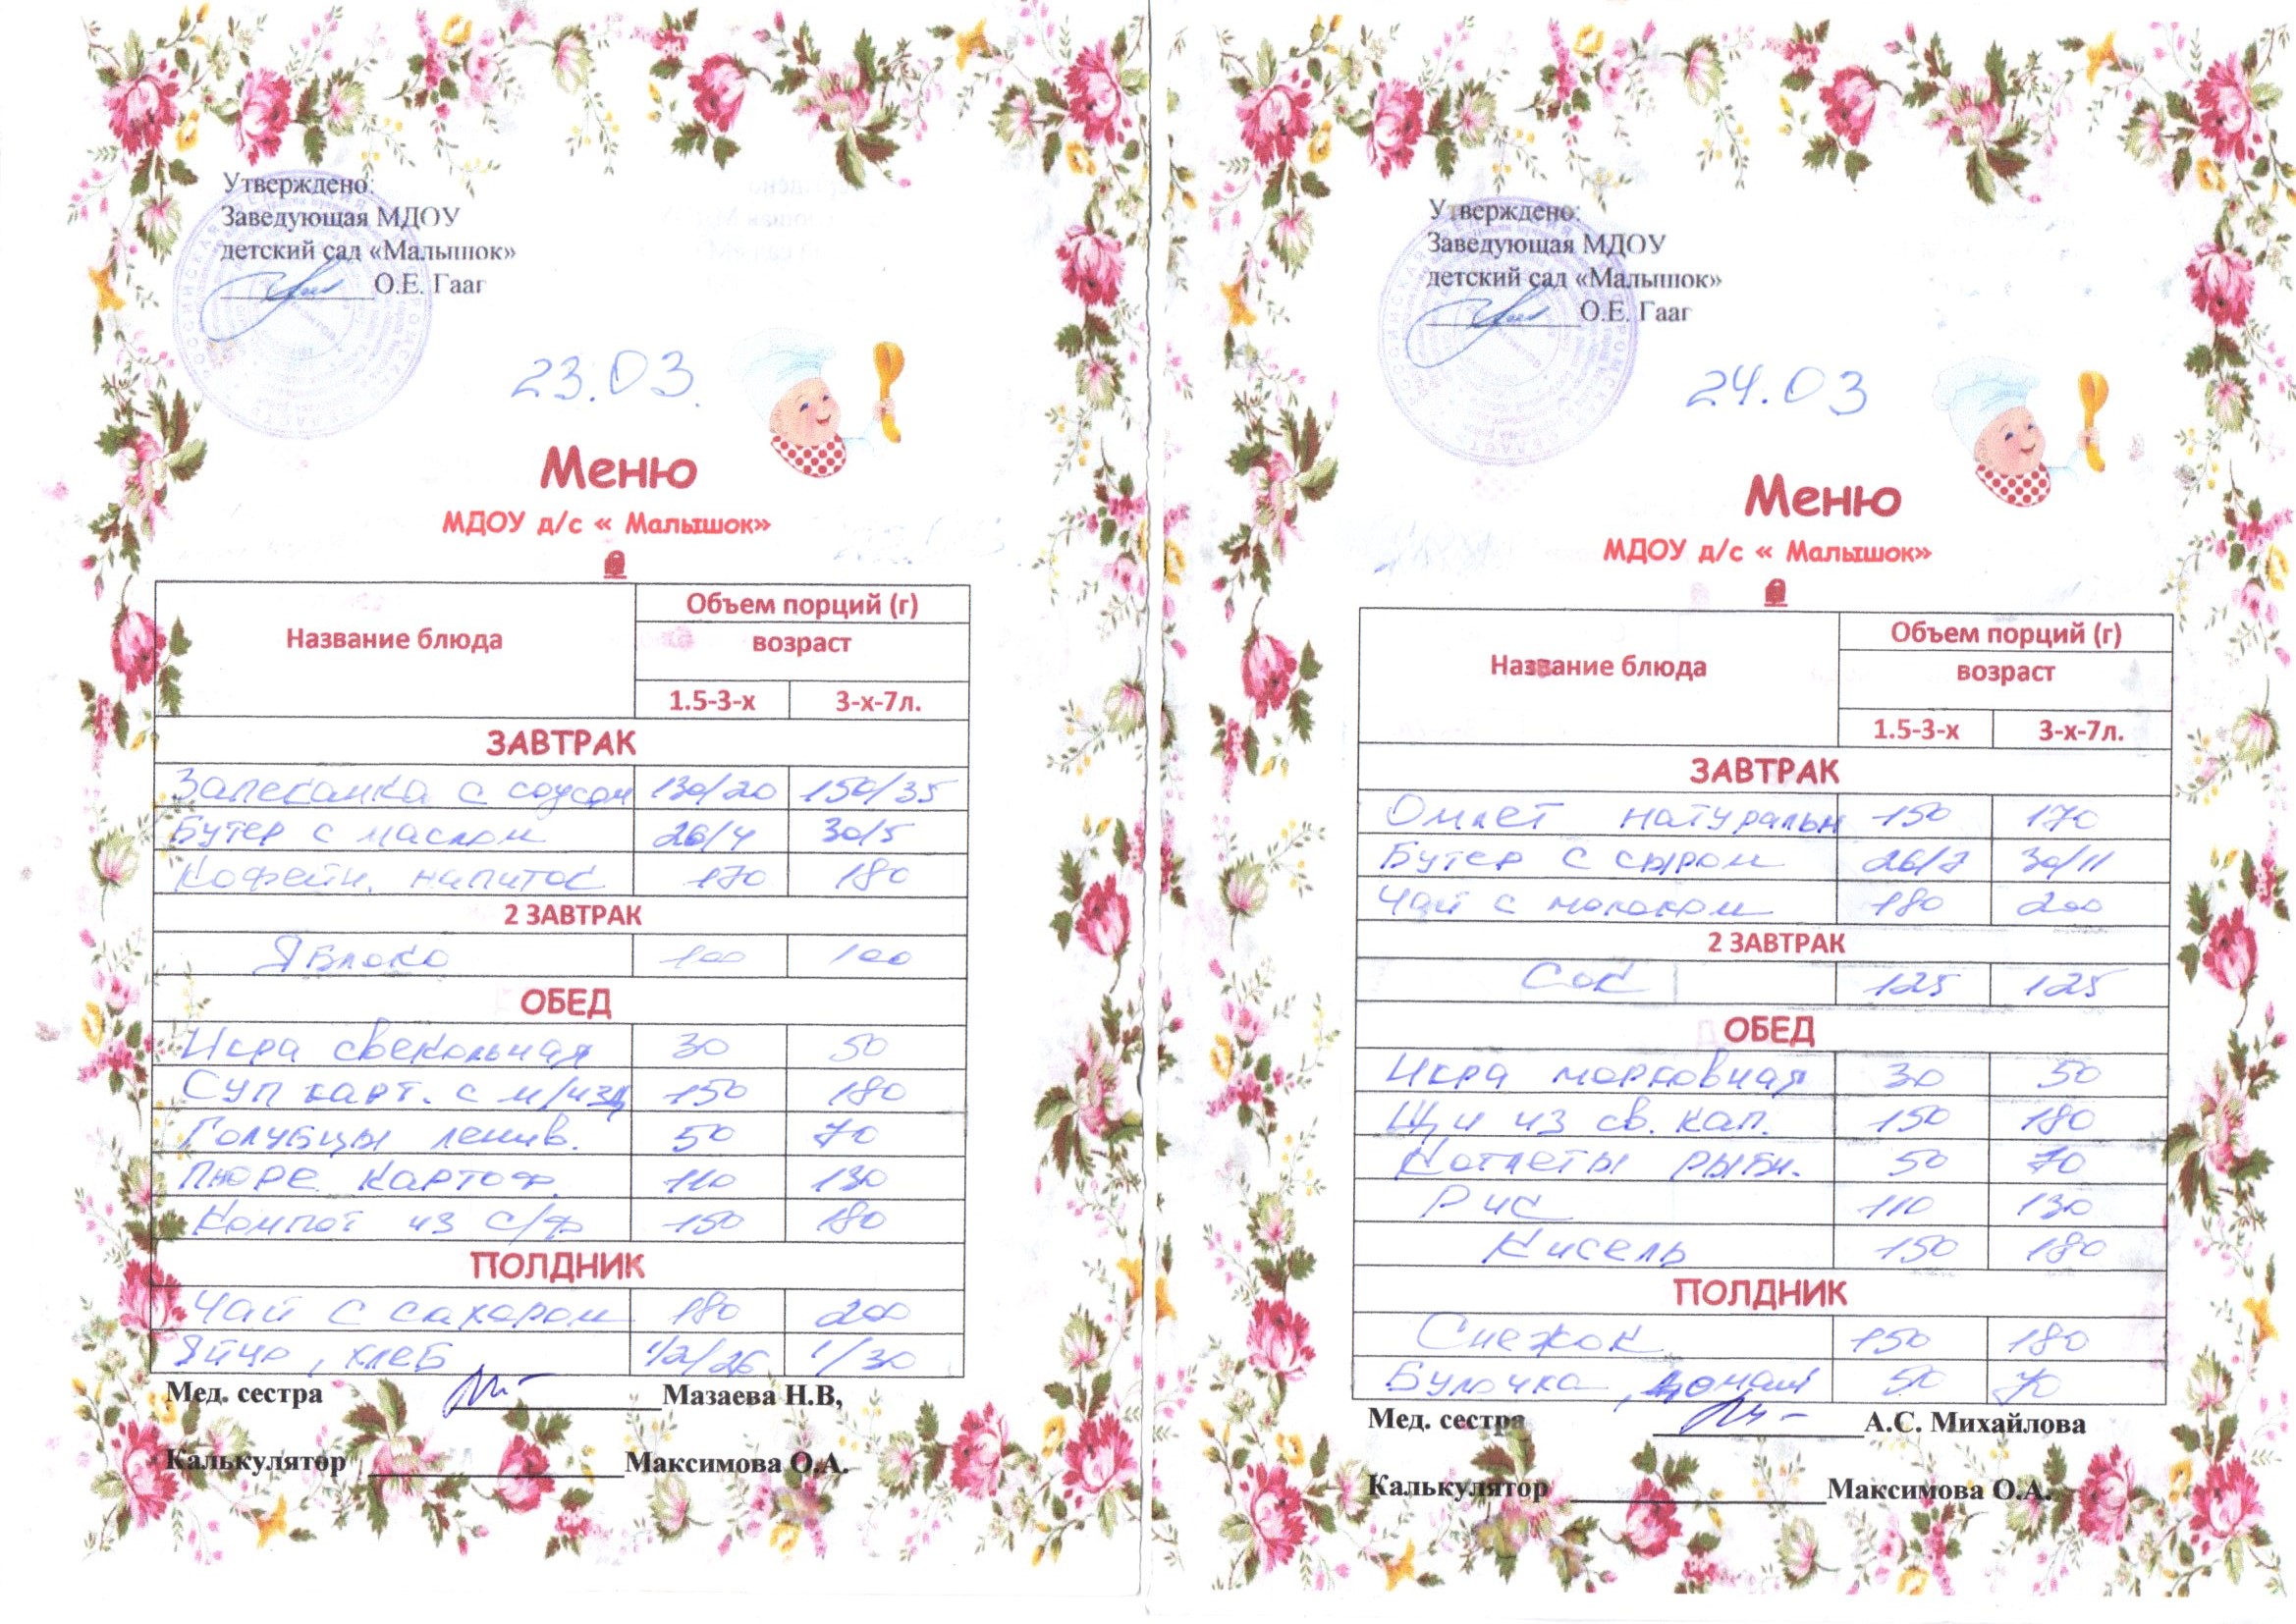 Утверждено:
Заведующая МДОУ
детский сад «Малышок»
О.Е. Гааг
23.03.
Меню
МДОУ д/с « Малышок»
Название блюда
Объем порций (г)
возраст
1.5-3-х 3-х-7л.
ЗАВТРАК
Запеканка с соусом 130/20 150/35
Бутер с маслом 26/4 30/5
Кофейн. напиток 170 180
2 ЗАВТРАК
Яблоко 100 100
ОБЕД
Икра свекольная 30 50
Суп карт. с м/изд 150 180
Голубцы ленив. 50 70
Пюре картоф. 110 130
Компот из с/ф 150 180
ПОЛДНИК
Чай с сахаром 180 200
Яйцо, хлеб 1/2/26 1/30
Мед. сестра Мазаева Н.В,
Калькулятор Максимова О.А.
Утверждено:
Заведующая МДОУ
детский сад «Малышок»
О.Е. Гааг
24.03
Меню
МДОУ д/с « Малышок»
Название блюда
Объем порций (г)
возраст
1.5-3-х 3-х-7л.
ЗАВТРАК
Омлет натуральн 150 170
Бутер с сыром 26/7 30/11
Чай с молоком 180 200
2 ЗАВТРАК
Сок 125 125
ОБЕД
Икра морковная 30 50
Щи из св. кап. 150 180
Котлеты рыбн. 50 70
Рис 110 130
Кисель 150 180
ПОЛДНИК
Снежок 150 180
Булочка домаш 50 70
Мед. сестра А.С. Михайлова
Калькулятор Максимова О.А.